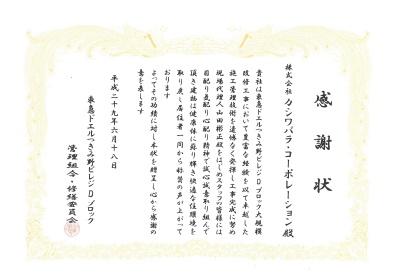 感謝状
株式会社 カシワバラ・コーポレーション 殿
貴社は東急ドエルつきみ野ビレジDブロック大規模
改修工事において豊富な経験を以て卓越した
施工管理技術を遺憾なく発揮し工事完成に努め
現場代理人山田彬正殿をはじめスタッフの皆様には
目配り気配り心配り精神で誠心誠意取り組んで
頂き建物は健康体に蘇り輝き快適な住環境を
取り戻し居住者一同から称賛の声が上がって
おります
よってその功績に対し本状を贈呈し心から感謝の
意を表します
平成二十九年六月十八日
東急ドエルつきみ野ビレジDブロック
管理組合・修繕委員会